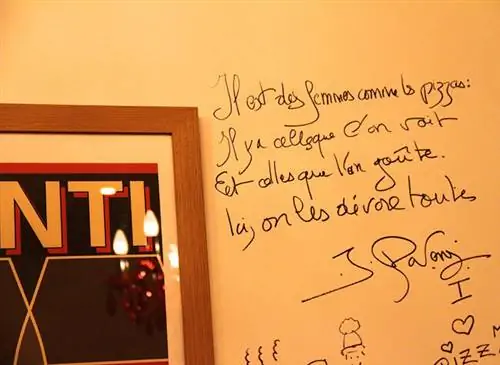 Il est des femmes comme les pizzas:
Il y a celles que l'on voit
Et celles que l'on goûte.
Ici, on les dévore toutes
NTI
I
PIZZ